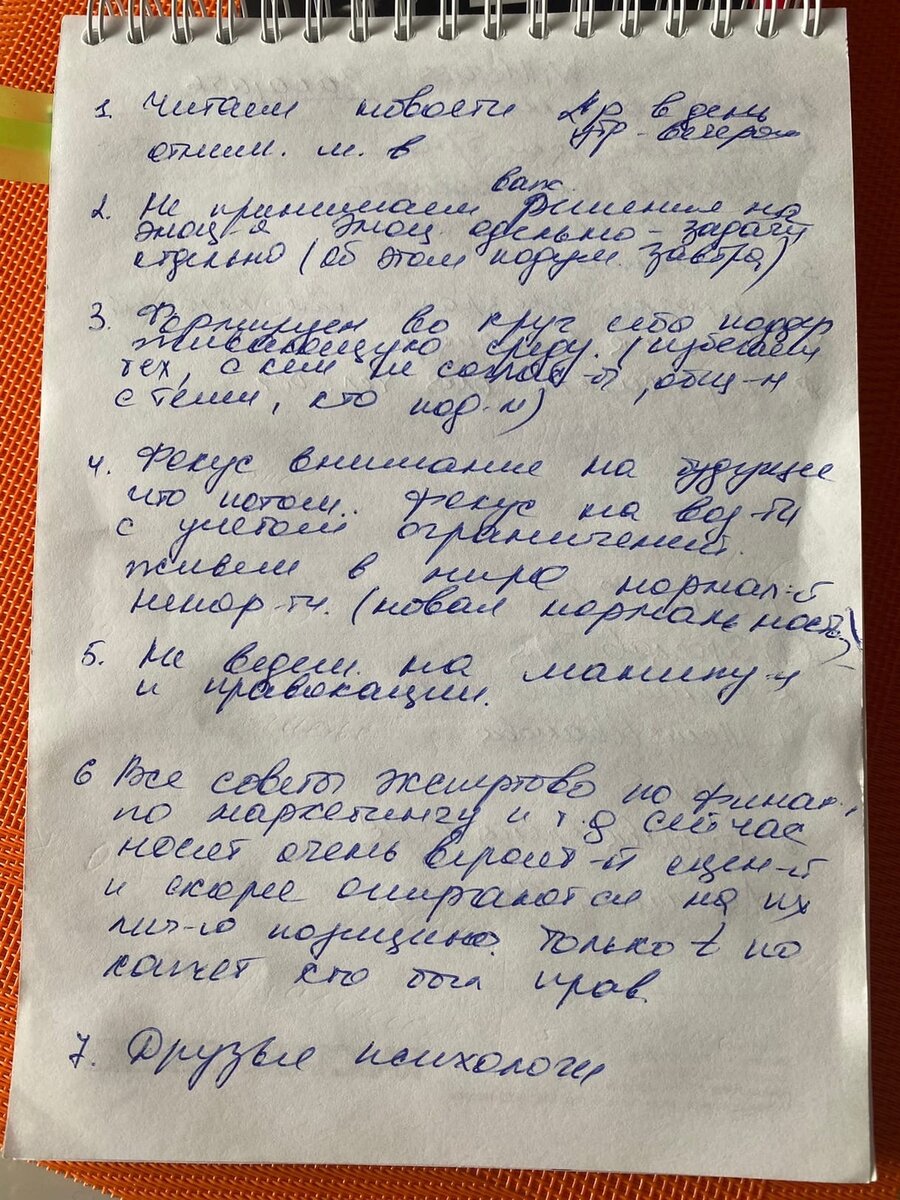 1. Читаем новости 2 р в день
утр - вечером
отним. м. в
важ.
2. Не принимаем решения на
эмоц-х эмоц. одельно - задачи
отдельно (об этом подум. завтра)
3. Формируем во круг себя поддер
живающую среду. (избегаем
тех, с кем не соглас-ы, общ-м
с теми, кто под-м)
4. Фокус внимание на будущее
что потом. Фокус на воз-ти
с учетом ограничений.
живем в мире нормал-й
ненор-ти. (новая нормальность)
5. Не ведем. на манипу-ц
и правокации.
6 Все советы экспертово по финан.,
по маркетингу и т.д сейчас
носит очень вероят-й сцен-й
и скорее опираются на их
лич-ю позицию. Только t по
кажет кто был прав
7. Друзья психологи